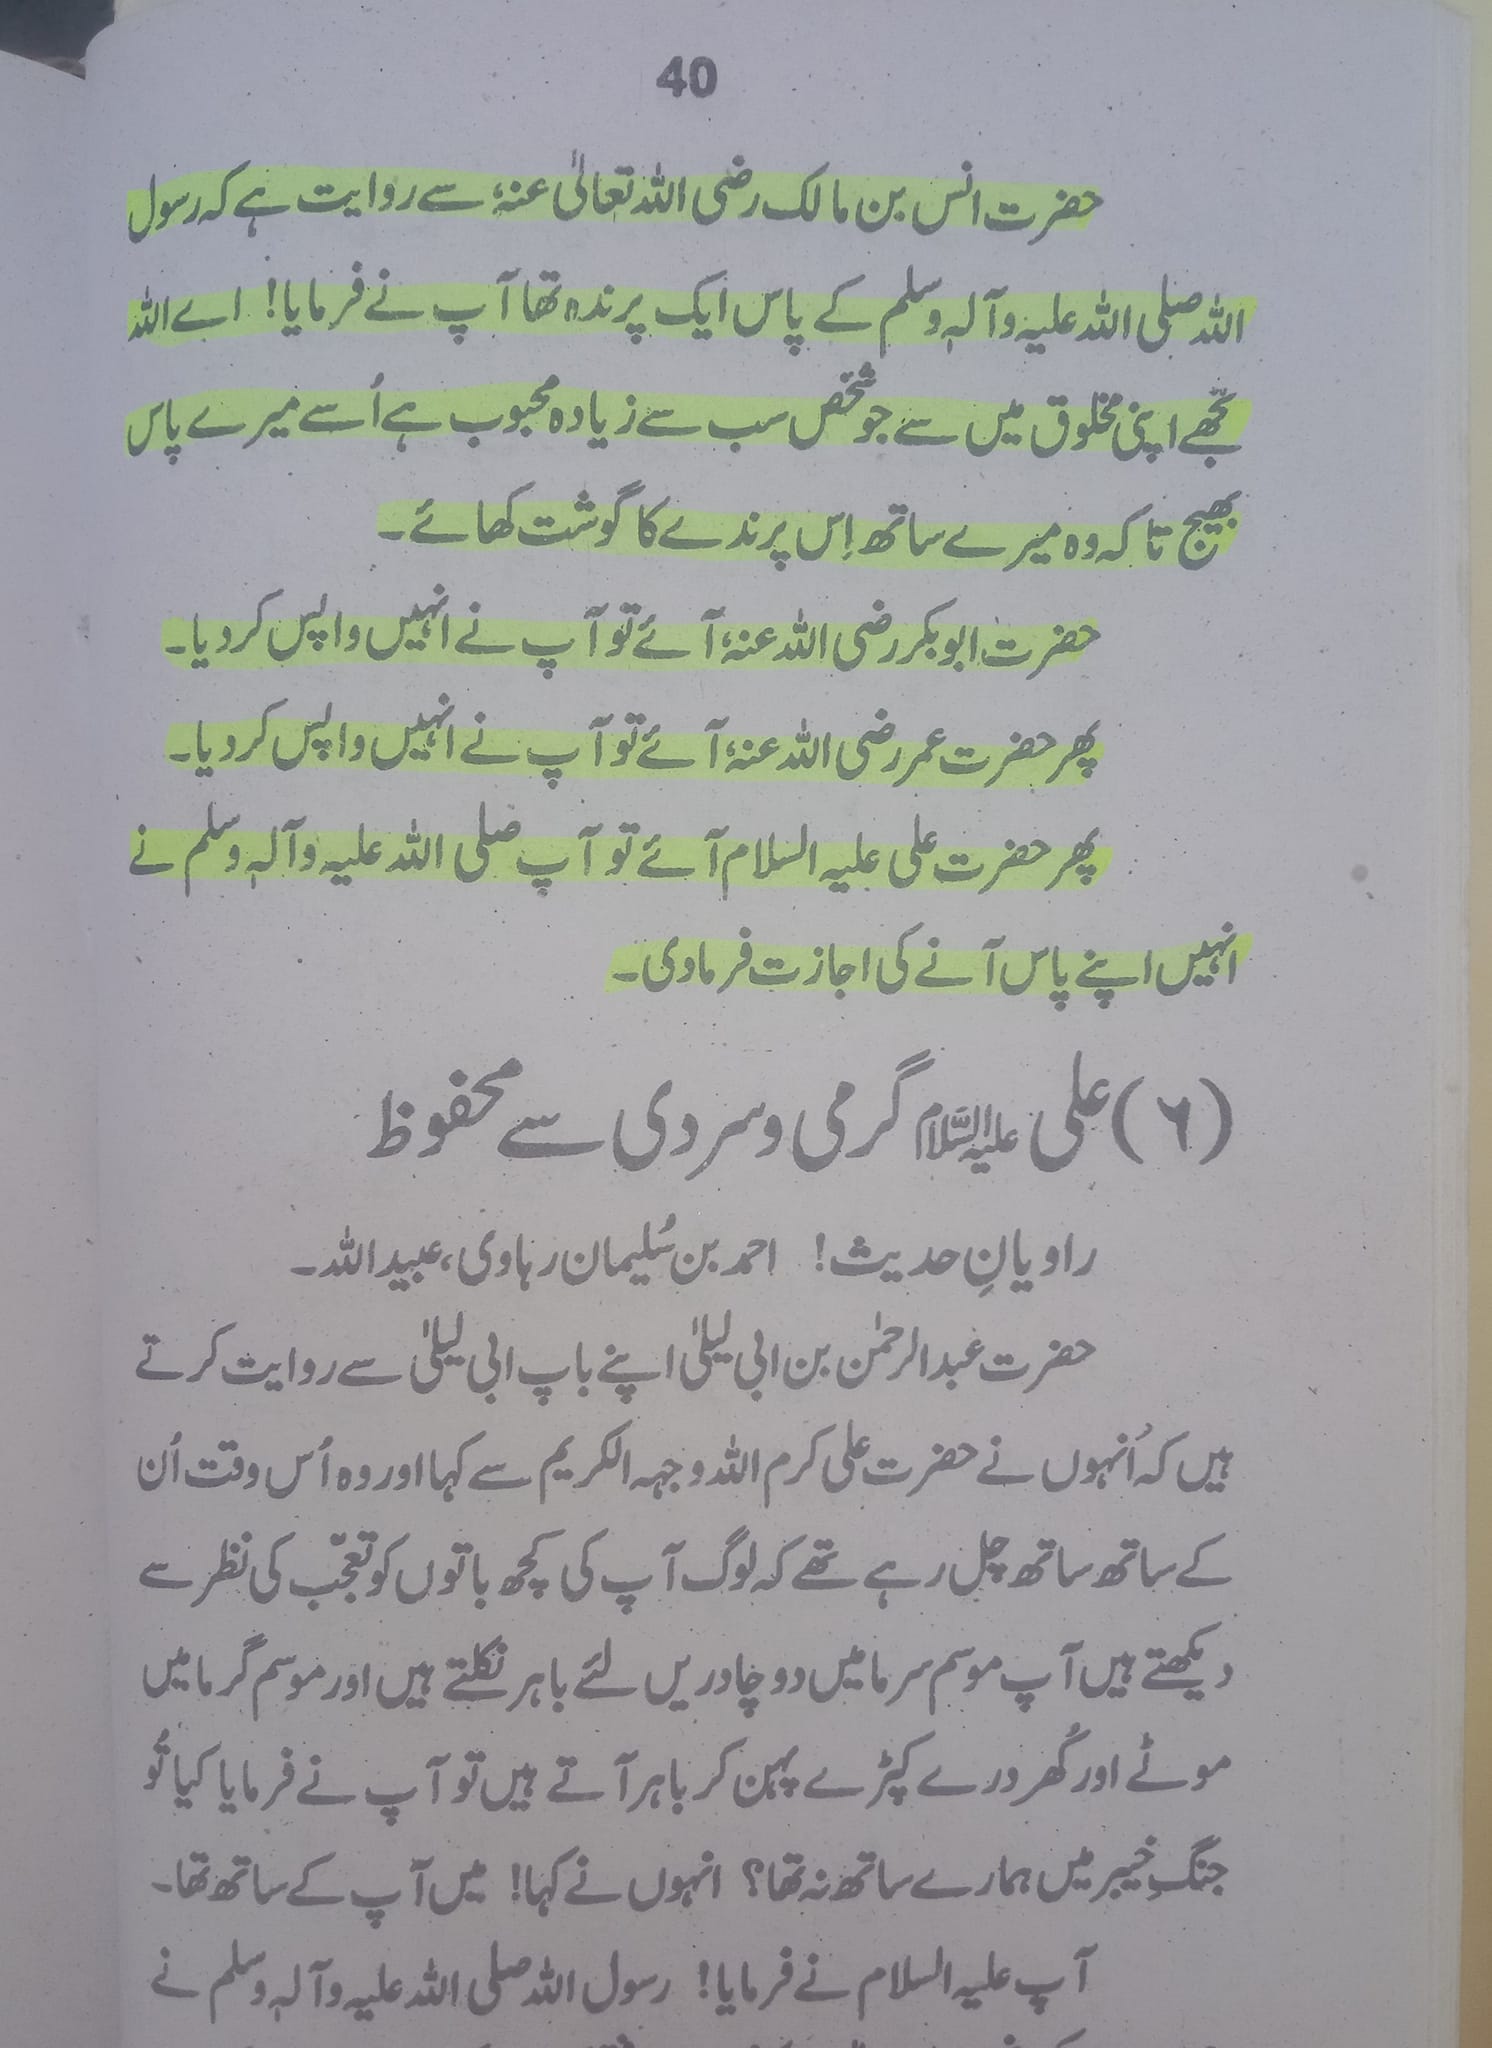 40
حضرت انس بن مالک رضی اللہ تعالیٰ عنہٗ سے روایت ہے کہ رسول
اللہ صلی اللہ علیہ وآلہٖ وسلم کے پاس ایک پرندہ تھا آپ نے فرمایا! اے اللہ
تجھے اپنی مخلوق میں سے جو شخص سب سے زیادہ محبوب ہے اُسے میرے پاس
بھیج تا کہ وہ میرے ساتھ اِس پرندے کا گوشت کھائے۔
حضرت ابوبکر رضی اللہ عنہٗ آئے تو آپ نے انہیں واپس کردیا۔
پھر حضرت عمر رضی اللہ عنہٗ آئے تو آپ نے انہیں واپس کردیا۔
پھر حضرت علی علیہ السلام آئے تو آپ صلی اللہ علیہ وآلہٖ وسلم نے
انہیں اپنے پاس آنے کی اجازت فرمادی۔
(۶) علی علیہ السَّلام گرمی و سردی سے محفوظ
راویانِ حدیث! احمد بن سُلیمان رہاوی، عبید اللہ۔
حضرت عبدالرحمٰن بن ابی لیلیٰ اپنے باپ ابی لیلیٰ سے روایت کرتے
ہیں کہ اُنہوں نے حضرت علی کرم اللہ وجہہ الکریم سے کہا اور وہ اُس وقت اُن
کے ساتھ ساتھ چل رہے تھے کہ لوگ آپ کی کچھ باتوں کو تعجّب کی نظر سے
دیکھتے ہیں آپ موسم سرما میں دو چادریں لئے باہر نکلتے ہیں اور موسم گرما میں
موٹے اور کُھردرے کپڑے پہن کر باہر آتے ہیں تو آپ نے فرمایا کیا تُو
جنگِ خیبر میں ہمارے ساتھ نہ تھا؟ انہوں نے کہا! میں آپ کے ساتھ تھا۔
آپ علیہ السلام نے فرمایا! رسول اللہ صلی اللہ علیہ وآلہٖ وسلم نے